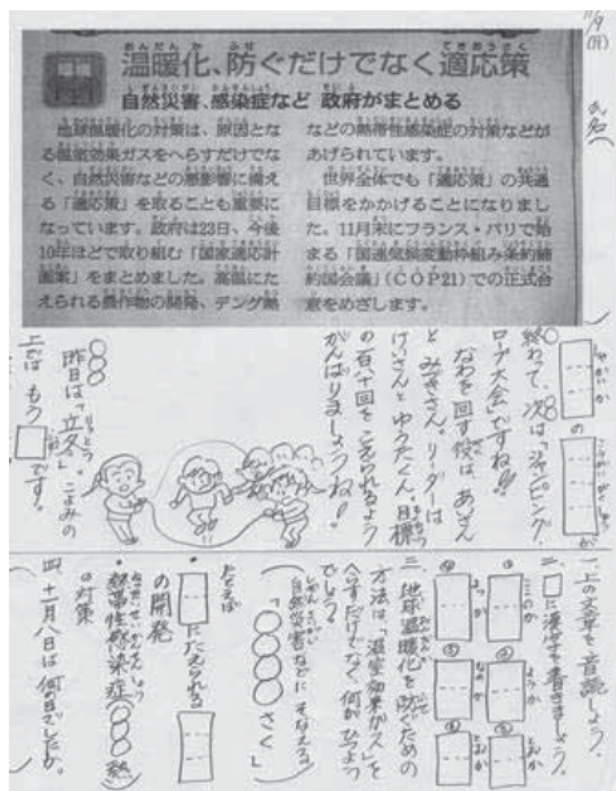 11/9
(月)
温暖化、防ぐだけでなく適応策
自然災害、感染症など 政府がまとめる
地球温暖化の対策は、原因とな
る温室効果ガスをへらすだけでな
く、自然災害などの悪影響に備え
る「適応策」を取ることも重要に
なっています。政府は23日、今後
10年ほどで取り組む「国家適応計
画案」をまとめました。高温にた
えられる農作物の開発、デング熱
などの熱帯性感染症の対策などが
あげられています。
世界全体でも「適応策」の共通
目標をかかげることになりまし
た。11月末にフランス・パリで始
まる「国連気候変動枠組み条約締
約国会議」(COP21)での正式合
意をめざします。
の
が
終わって、次は「ジャンピング
ロープ大会」ですね!!
なわを回す役は、あ
と みずきさん。リーダーは
けいさんと ゆうたくん。目標
の百十回を こえられるよう
がんばりましょうね!
昨日は「立冬」。こよみの
上では もう□です。
一、上の文章を音読しましょう。
二、□に漢字を書きましょう。
ここのか
ようか
とおか
よっか
なのか
三、地球温暖化を防ぐための
方法は「温室効果ガス」を
へらすだけでなく 何がひつよう
でしょう。
自然災害などに そなえる
「○○○○さく」
たとえば
・
にたえられる
の開発
・熱帯性感染症(○○○熱)
の対策
四、十一月八日は何の日でしたか。